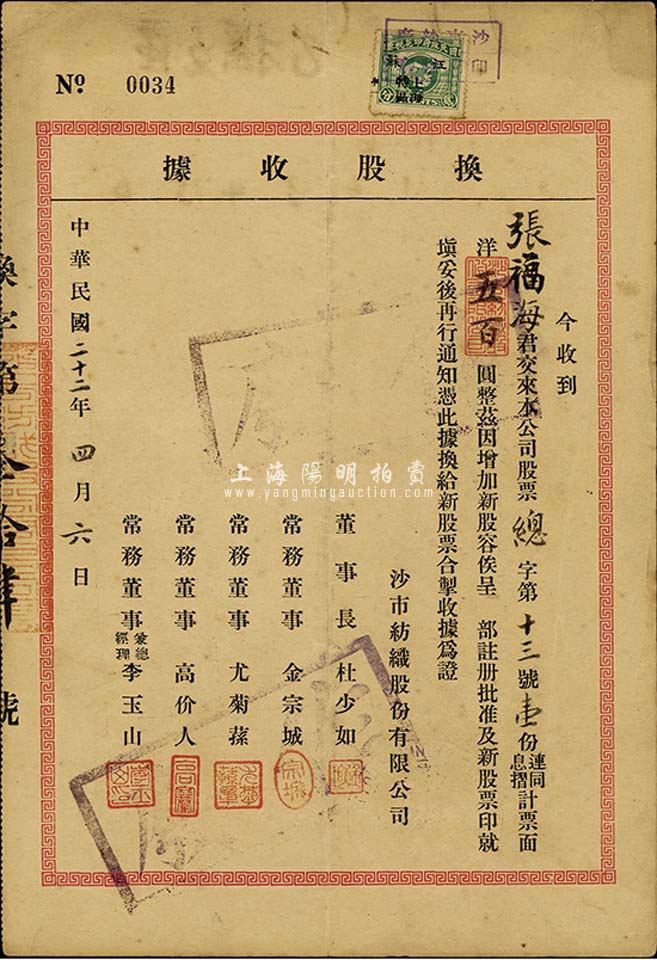 Nº 0034
沙市紡
印
江蘇
上海特區
換股收據
今收到
張福海君交來本公司股票總字第十三號壹份連同息摺計票面
洋五百圓整茲因增加新股容俟呈 部註册批准及新股票印就
塡妥後再行通知憑此據換給新股票合掣收據爲證
沙市紡織股份有限公司
董事長杜少如
常務董事金宗城
常務董事尤菊蓀
常務董事高价人
常務董事兼總經理李玉山
中華民國二十二年四月六日
換字第叁拾肆號
上海陽明拍賣
www.yangmingauction.com